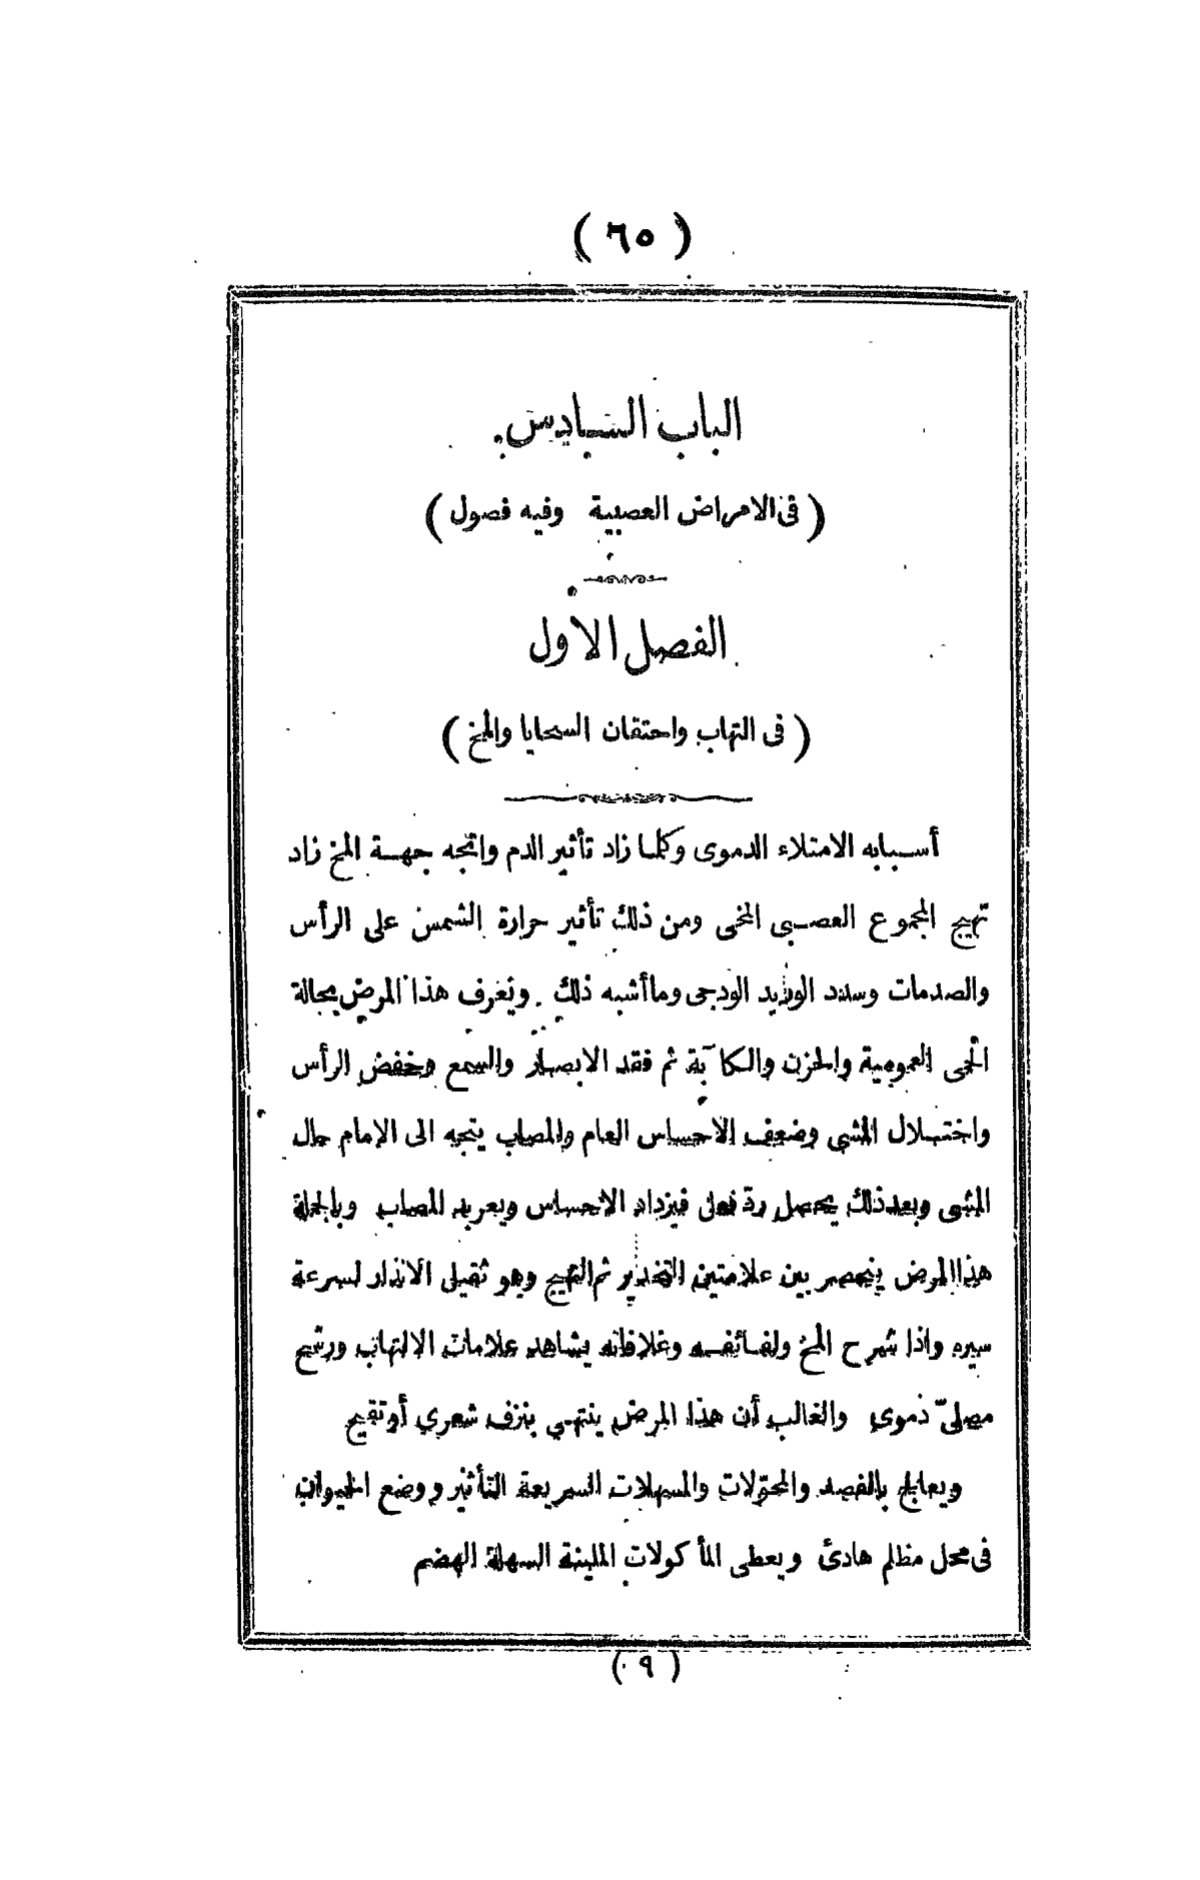 ( ٦٥ )
الباب السادس
( فى الامراض العصبية وفيه فصول )
الفصل الاول
( فى التهاب واحتقان السحايا والمخ )
أسبابه الامتلاء الدموى وكلما زاد تأثير الدم واتجه جهة المخ زاد
تهيج المجموع العصبى المخى ومن ذلك تأثير حرارة الشمس على الرأس
والصدمات وسدد الوريد الودجى وماأشبه ذلك . وتعرف هذا المرض بحالة
الحمى العمومية والحزن والكآبة ثم فقد الابصار والسمع وخفض الرأس
واختلال المشى وضعف الاحساس العام والمصاب يتجه الى الإمام حال
المشى وبعد ذلك يحصل ردّ فعل فيزداد الاحساس ويعربد المصاب وبالجملة
هذا المرض ينحصر بين علامتين التخدير ثم التهيج وهو ثقيل الانذار لسرعة
سيره واذا شرح المخ ولفائفه وغلافاته يشاهد علامات الالتهاب ورشح
مصلىّ دموى والغالب أن هذا المرض ينتهى بنزف شعري أو تقيح
ويعالج بالفصد والمحوّلات والمسهلات السريعة التأثير ووضع الحيوان
فى محل مظلم هادئ ويعطى المأكولات الملينة السهلة الهضم
( ٩ )